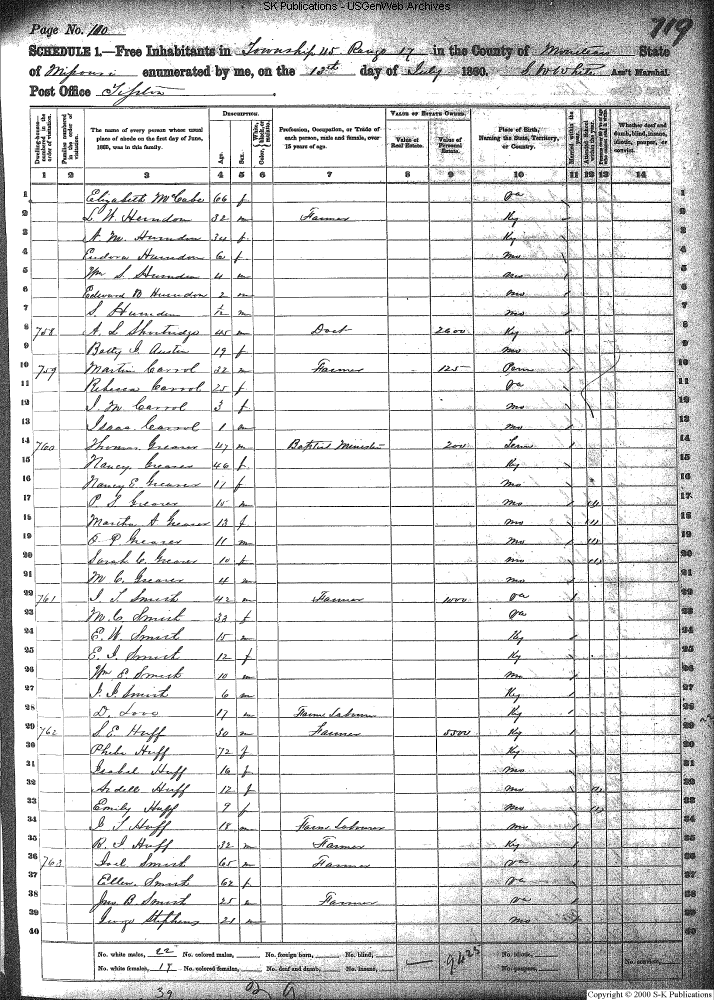 SK Publications - USGenWeb Archives
Page No. 110
719
SCHEDULE 1.—Free Inhabitants in Township 45 Range 17 in the County of Moniteau State
of Missouri enumerated by me, on the 13th day of July 1860. S. W. White Ass't Marshal.
Post Office Tipton
DESCRIPTION.
VALUE OF ESTATE OWNED.
Dwelling-houses—numbered in the order of visitation.
Families numbered in the order of visitation.
The name of every person whose usual place of abode on the first day of June, 1860, was in this family.
Age.
Sex.
Color, White, black, or mulatto.
Profession, Occupation, or Trade of each person, male and female, over 15 years of age.
Value of Real Estate.
Value of Personal Estate.
Place of Birth, Naming the State, Territory, or Country.
Married within the year.
Attended School within the year.
Whether deaf and dumb, blind, insane, idiotic, pauper, or convict.
1 2 3 4 5 6 7 8 9 10 11 12 13 14
1 Elizabeth McCabe 66 f Va 1
2 L W Herndon 32 m Farmer Ky 2
3 Herndon f Ky 3
4 Eudora Herndon 6 f Mo 4
5 Wm S Herndon 4 m Mo 5
6 Edward B Herndon 2 m Mo 6
7 S Herndon m Mo 7
8 758 A. L Shortridge 45 m Doct 2600 Ky 8
9 Betty J Austin 19 f Mo 9
10 759 Martin Carrol 32 m Farmer 125 Penn 10
11 Rebecca Carrol 25 f Va 11
12 J. M Carrol 3 f Mo 12
13 Isaac Carrol 1 m Mo 13
14 760 Thomas Greaser 47 m Baptist Minister 200 Tenn 14
15 Nancy Greaser 46 f Ky 15
16 Nancy E Greaser 11 f Mo 16
17 P. S Greaser 15 m Mo 17
18 Martha A Greaser 13 f Mo 18
19 Greaser 11 m Mo 19
20 Sarah C. Greaser 10 f Mo 20
21 M C. Greaser 4 m Mo 21
22 761 J. T Smith 42 m Farmer 1000 Va
23 M. C. Smith 33 f Va
24 E. W. Smith 15 m Ky 24
25 E. J. Smith 12 f Ky 25
26 Wm E Smith 10 m 26
27 J. J. Smith 6 m Ky 27
28 D. Love 17 m Farm Laborer Ky 28
29 762 S. E Huff 30 m Farmer 5500 Ky 29
30 Phebe Huff 72 f Ky 30
31 Isabel Huff 16 f Mo 31
32 Ardell Huff 12 f Mo 32
33 Emily Huff 9 f Mo 33
34 J S Huff 18 m Farm Labourer Mo 34
35 R. J Huff 32 m Farmer Ky 35
36 763 Joel Smith 65 m Farmer Va 36
37 Ellen Smith 62 f Va 37
38 Jno B Smith 25 m Farmer Va 38
39 George Stephens 21 m Mo 39
40 40
No. white males, 22 No. colored males, No. foreign born, No. blind, 9425 No. idiotic,
No. white females, 17 No. colored females, No. deaf and dumb, No. insane, No. paupers, No. convicts,
39
Copyright © 2000 S-K Publications